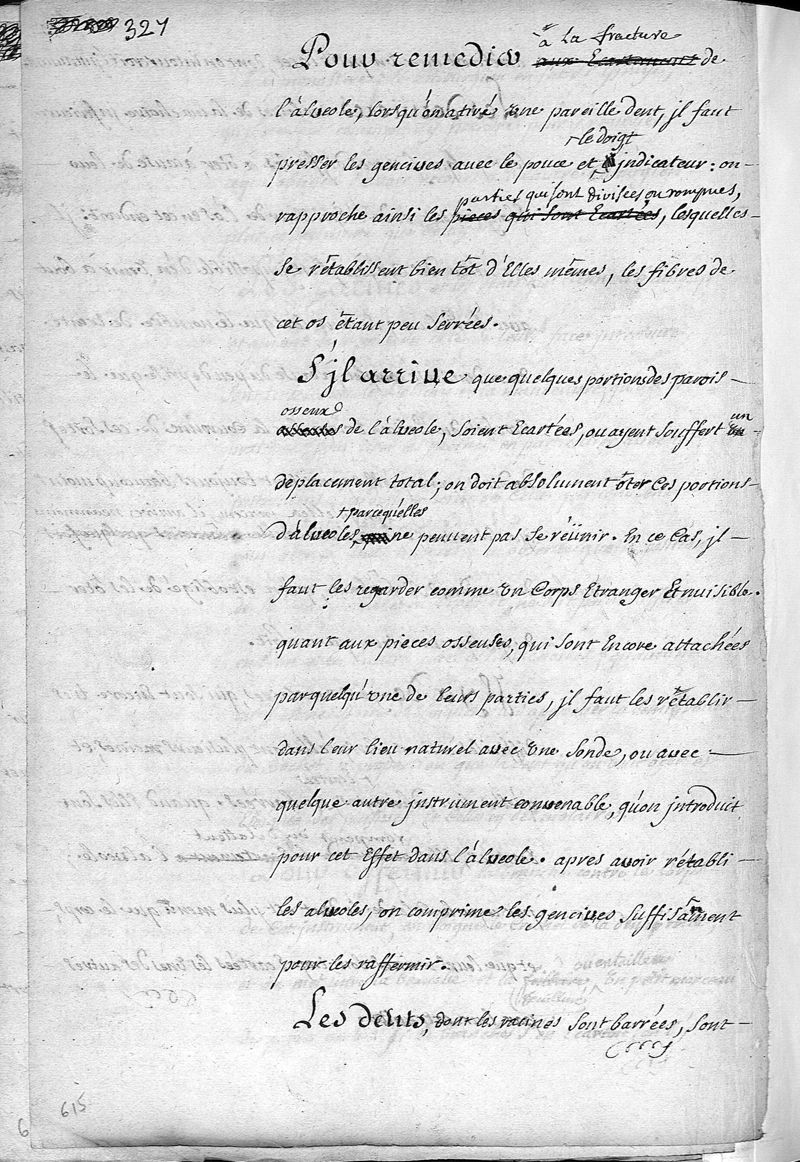 327
à la fracture
Pour remedier aux Ecartements de
l'alveole, lorsqu'on a tiré une pareille dent, jl faut
le doigt
presser les gencives avec le pouce et jndicateur: on
parties qui sont divisées, ou rompues,
rapproche ainsi les pieces qui sont Ecartées, lesquelles
se rétablissent bien tôt d'Elles mêmes, les fibres de
cet os étant peu serrées.
S'jl arrive que quelques portions des parois
osseux
de l'alveole, soient Ecartées, ou ayent souffert un
déplacement total; on doit absolument ôter ces portions
parcequ'elles
d'alveoles, ne peuvent pas se réünir. En ce cas, jl
faut les regarder comme un Corps Etranger Et nuisible.
quant aux pieces osseuses, qui sont Encore attachées
par quelqu'une de leurs parties, jl faut les rétablir
dans leur lieu naturel avec une sonde, ou avec
quelque autre jnstrument convenable, qu'on jntroduit
pour cet Effet dans l'alveole. apres avoir rétabli
les alveoles, on comprime les gencives suffisamment
pour les raffermir.
Les dents, dont les racines sont barrées, sont
615